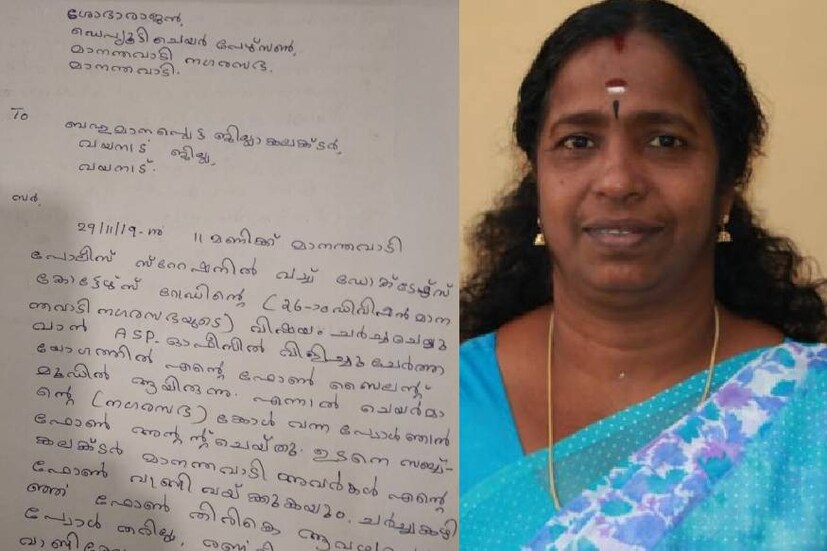 ശോഭാരാജൻ,
ഡെപ്യൂട്ടി ചെയർ പേഴ്സൺ,
മാനന്തവാടി നഗരസഭ,
മാനന്തവാടി.
To
ബഹുമാനപ്പെട്ട ജില്ലാ കലക്ടർ,
വയനാട് ജില്ല,
വയനാട്.
സർ,
29/11/19-ന് 11 മണിക്ക് മാനന്തവാടി
പോലീസ് സ്റ്റേഷനിൽ വച്ച് ഡോക്ടേഴ്സ്
കോട്ടേഴ്സ് റോഡിന്റെ (26-ാം ഡിവിഷൻ മാന
ന്തവാടി നഗരസഭയുടെ) വിഷയം ചർച്ചചെയ്യു
വാൻ ASP. ഓഫീസിൽ വിളിച്ചു ചേർത്ത
യോഗത്തിൽ എന്റെ ഫോൺ സൈലന്റ്
മൂഡിൽ ആയിരുന്നു. എന്നാൽ ചെയർമാ
ന്റെ (നഗരസഭ) കോൾ വന്നപ്പോൾ ഞാൻ
ഫോൺ അറ്റന്റ് ചെയ്തു. ഉടനെ സബ്ബ്-
കലക്ടർ മാനന്തവാടി അവർകൾ എന്റെ
ഫോൺ വാങ്ങി വയ്ക്കുകയും. ചർച്ചകഴി
ഞ്ഞ് ഫോൺ തിരികെ
പ്പോൾ തരില്ല,